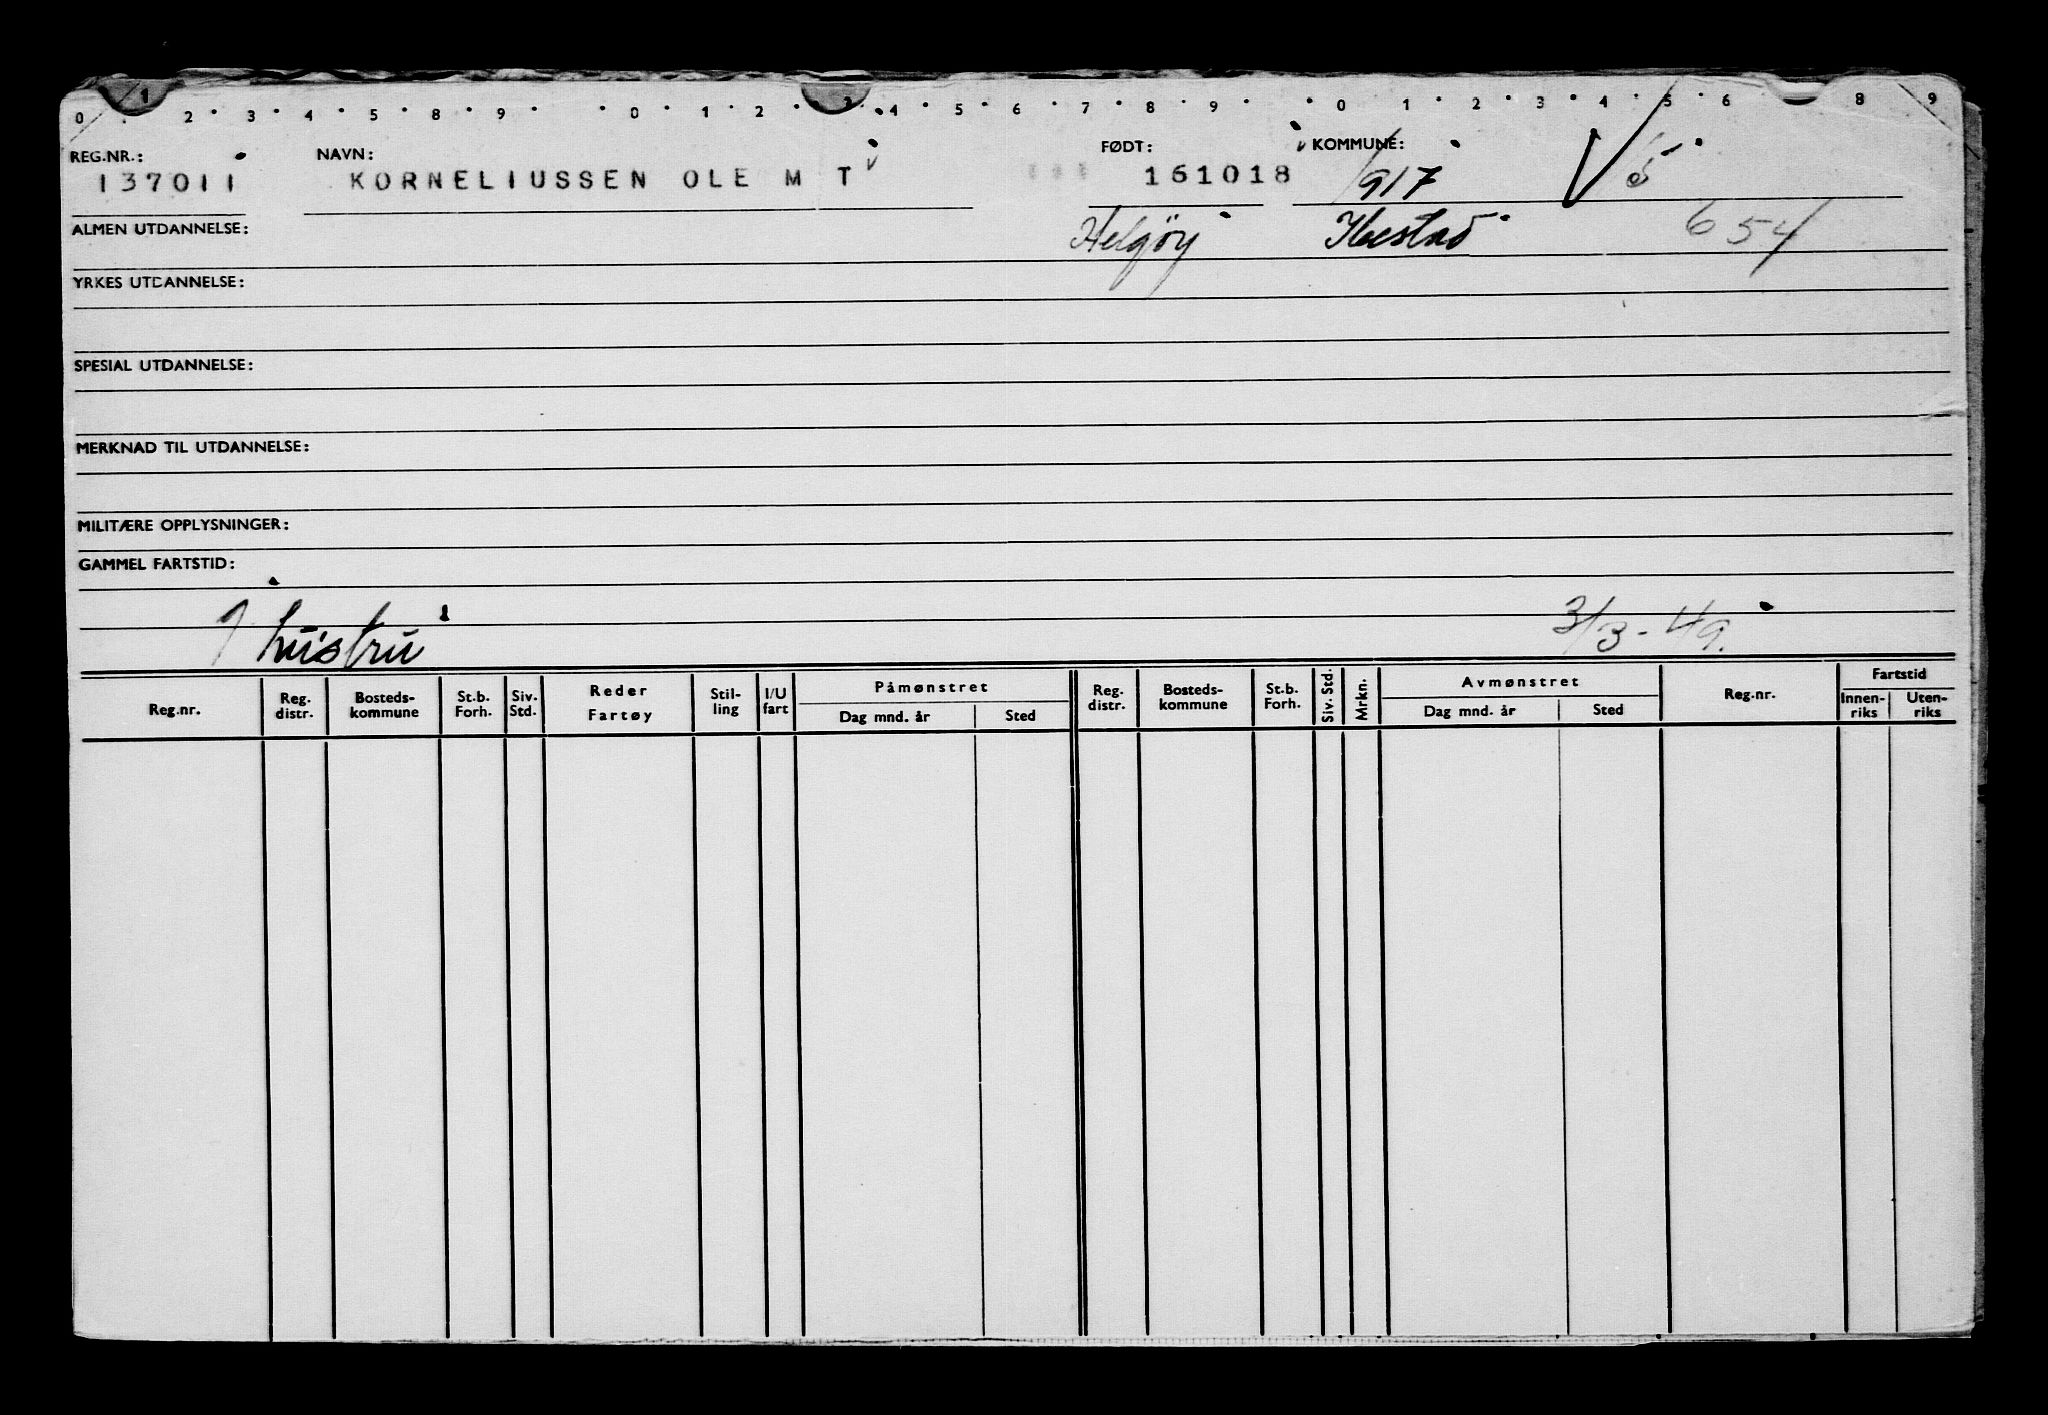 0 1 2 3 4 5 8 9 0 1 2 3 4 5 6 7 8 9 0 1 2 3 4 5 6 8 9
REG.NR.: NAVN: FØDT: KOMMUNE:
137011 KORNELIUSSEN OLE M T 161018 1917 5
ALMEN UTDANNELSE: Helgöy Ibestad 654
YRKES UTDANNELSE:
SPESIAL UTDANNELSE:
MERKNAD TIL UTDANNELSE:
MILITÆRE OPPLYSNINGER:
GAMMEL FARTSTID:
hustru 3/3-49.
Reg.nr. Reg. distr. Bosteds-kommune St.b. Forh. Siv. Std. Reder Fartøy Stil-ling I/U fart Påmønstret Dag mnd. år Sted Reg. distr. Bosteds-kommune St.b. Forh. Siv. Std. Mrkn. Avmønstret Dag mnd. år Sted Reg.nr. Fartstid Innen-riks Uten-riks